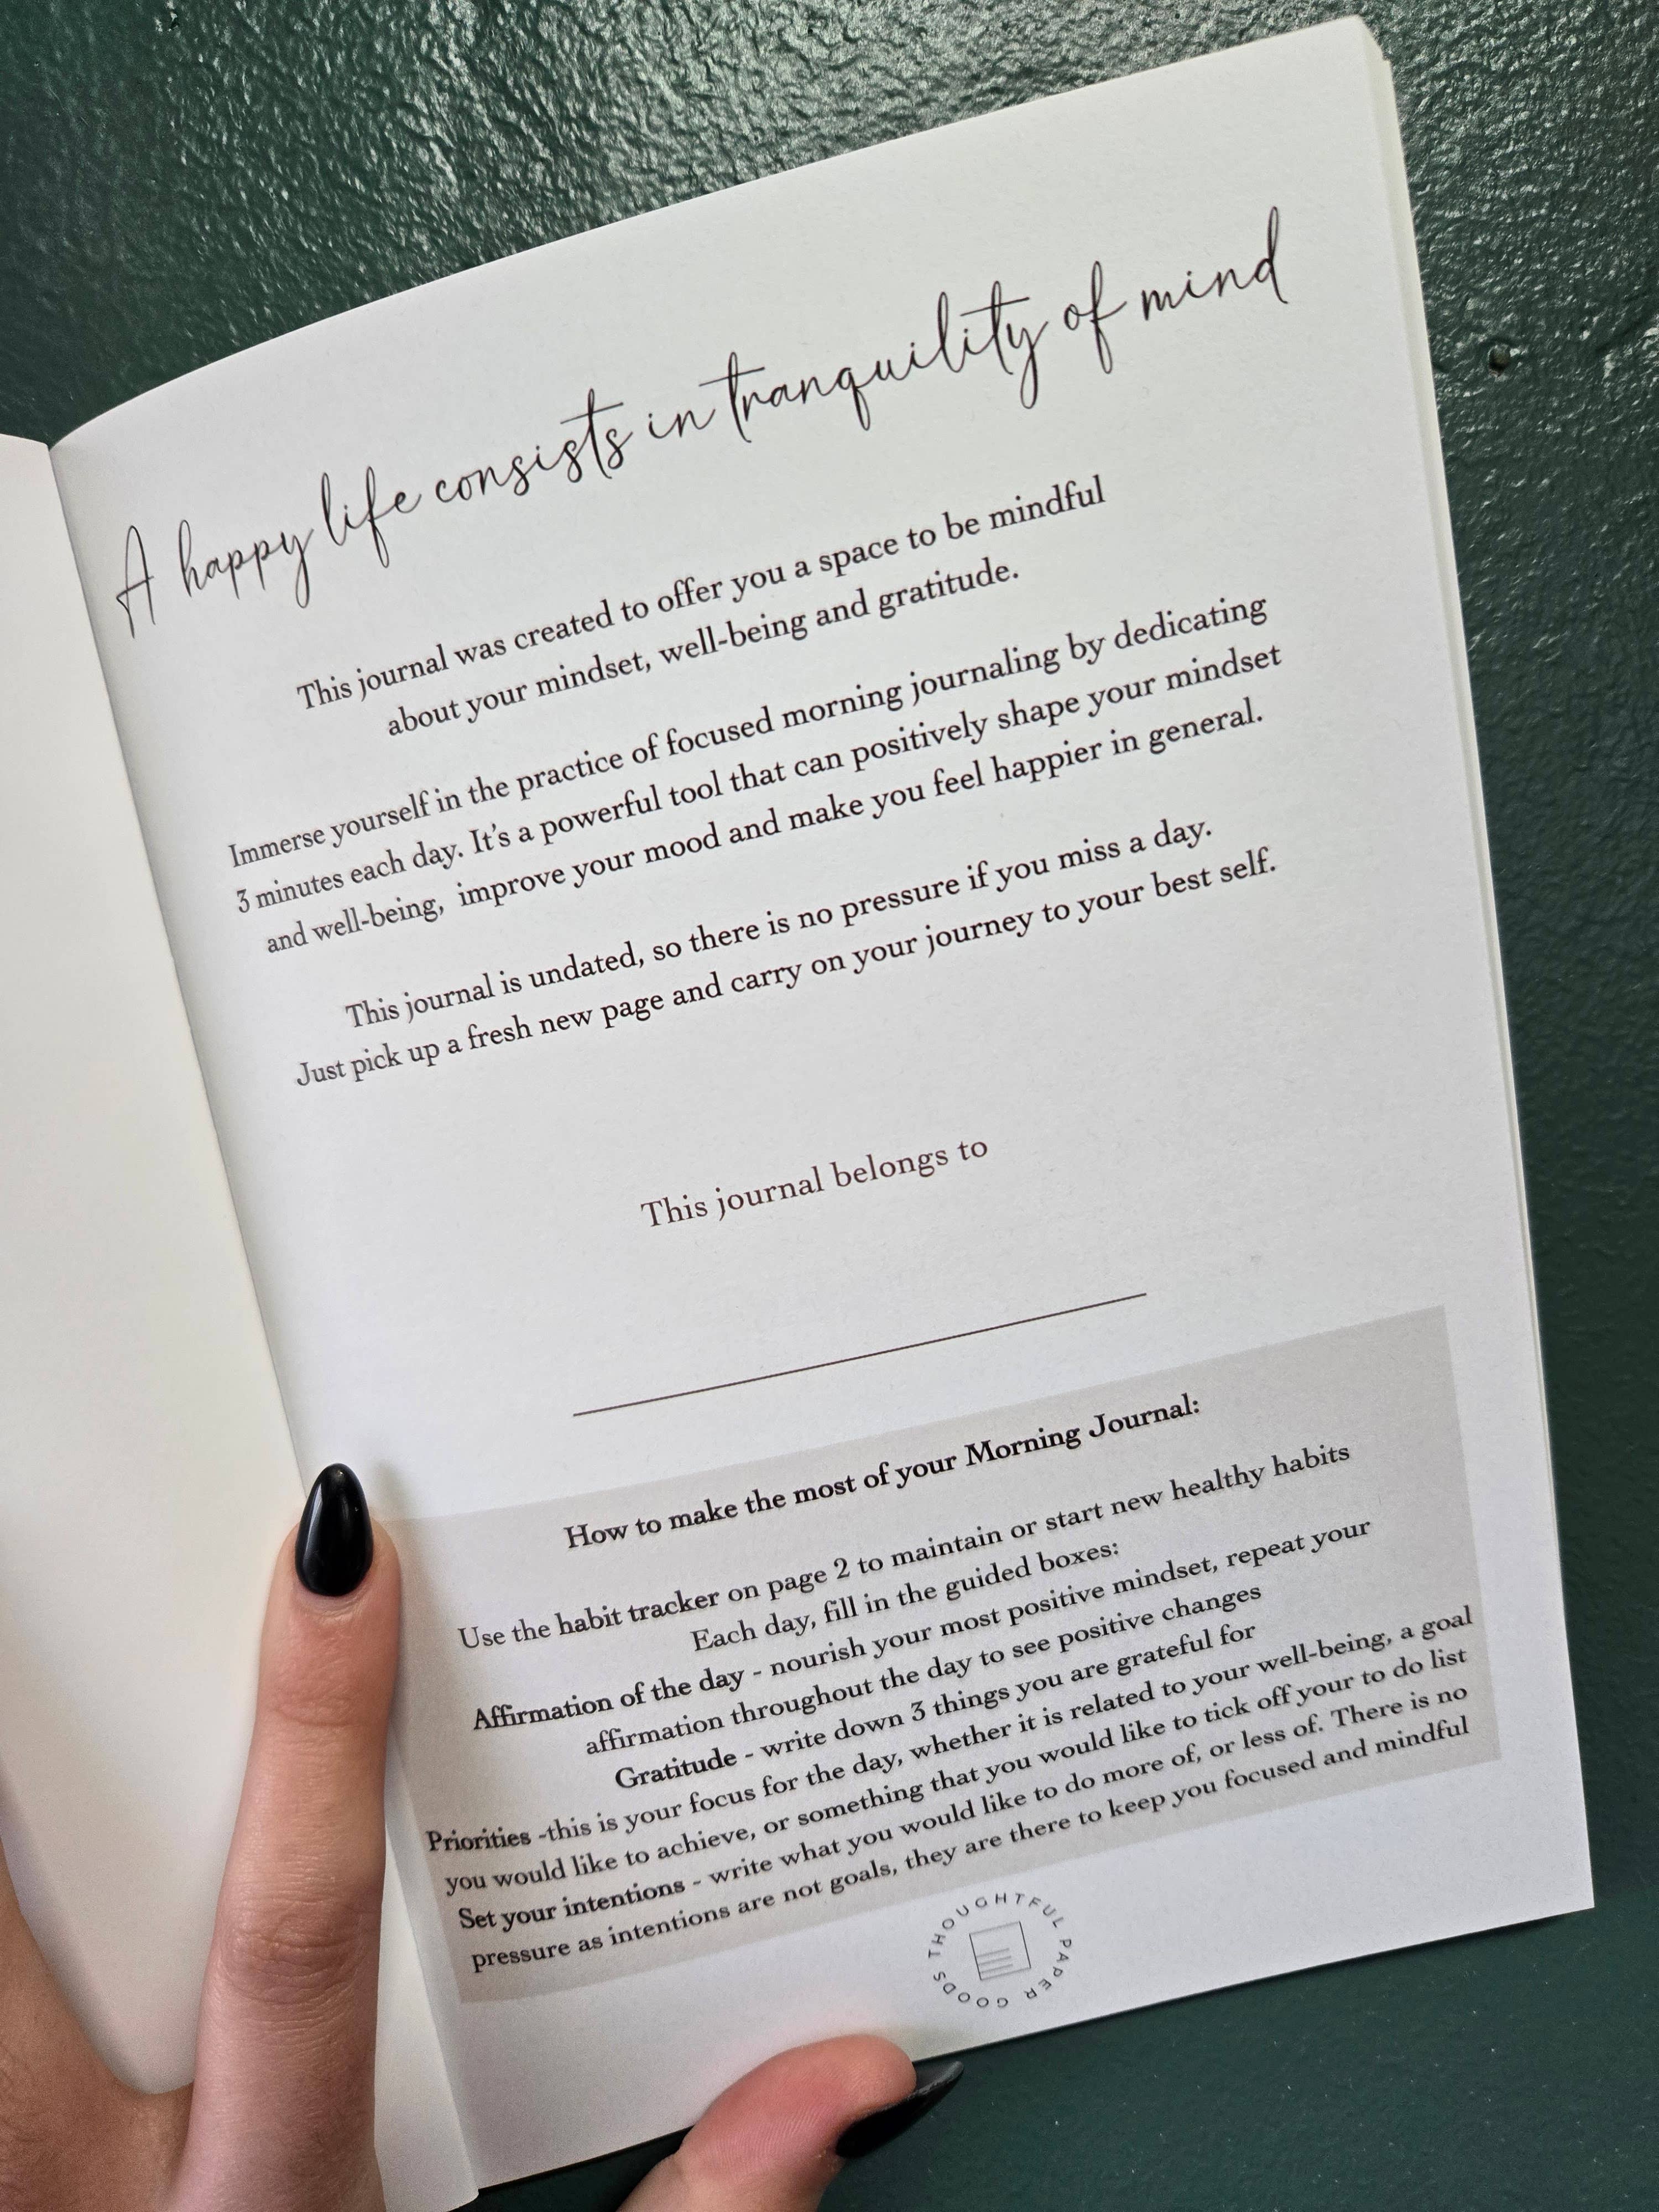 A happy life consists in tranquility of mind
This journal was created to offer you a space to be mindful
about your mindset, well-being and gratitude.
Immerse yourself in the practice of focused morning journaling by dedicating
3 minutes each day. It's a powerful tool that can positively shape your mindset
and well-being, improve your mood and make you feel happier in general.
This journal is undated, so there is no pressure if you miss a day.
Just pick up a fresh new page and carry on your journey to your best self.
This journal belongs to
How to make the most of your Morning Journal:
Use the habit tracker on page 2 to maintain or start new healthy habits
Each day, fill in the guided boxes:
Affirmation of the day - nourish your most positive mindset, repeat your
affirmation throughout the day to see positive changes
Gratitude - write down 3 things you are grateful for
Priorities -this is your focus for the day, whether it is related to your well-being, a goal
you would like to achieve, or something that you would like to tick off your to do list
Set your intentions - write what you would like to do more of, or less of. There is no
pressure as intentions are not goals, they are there to keep you focused and mindful
THOUGHTFUL PAPER GOODS